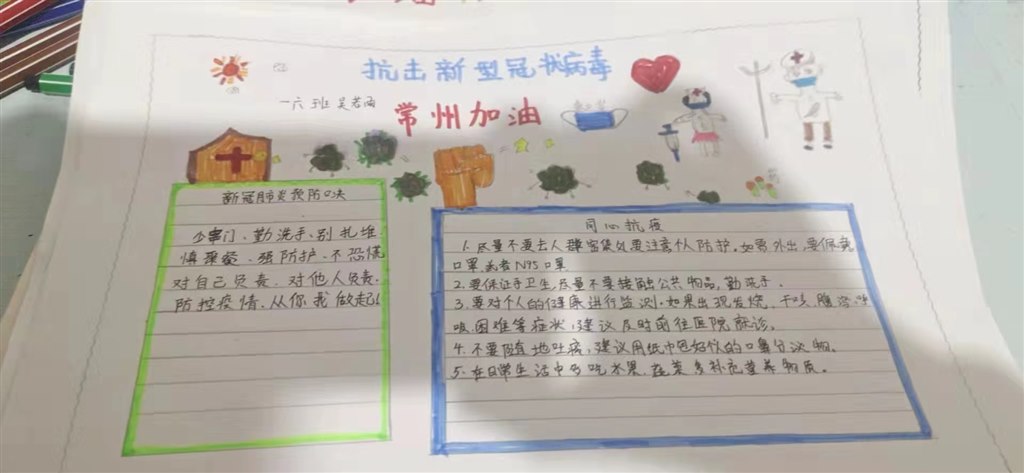 抗击新型冠状病毒
一六班 吴若雨
常州加油
新冠肺炎预防口决
少窜门、勤洗手、别扎堆
慎聚餐、强防护、不恐慌
对自己负责、对他人负责.
防控疫情、从你我做起!
同心抗疫
1.尽量不要去人群密集处要注意个人防护。如需外出,要佩戴
口罩或者N95口罩
2.要保证手卫生,尽量不要接触公共物品,勤洗手。
3.要对个人的健康进行监测.如果出现发烧、干咳、腹泻、呼
吸困难等症状,建议及时前往医院就诊。
4.不要随地吐痰,建议用纸巾包好你的口鼻分泌物。
5.在日常生活中多吃水果、蔬菜多补充营养物质。